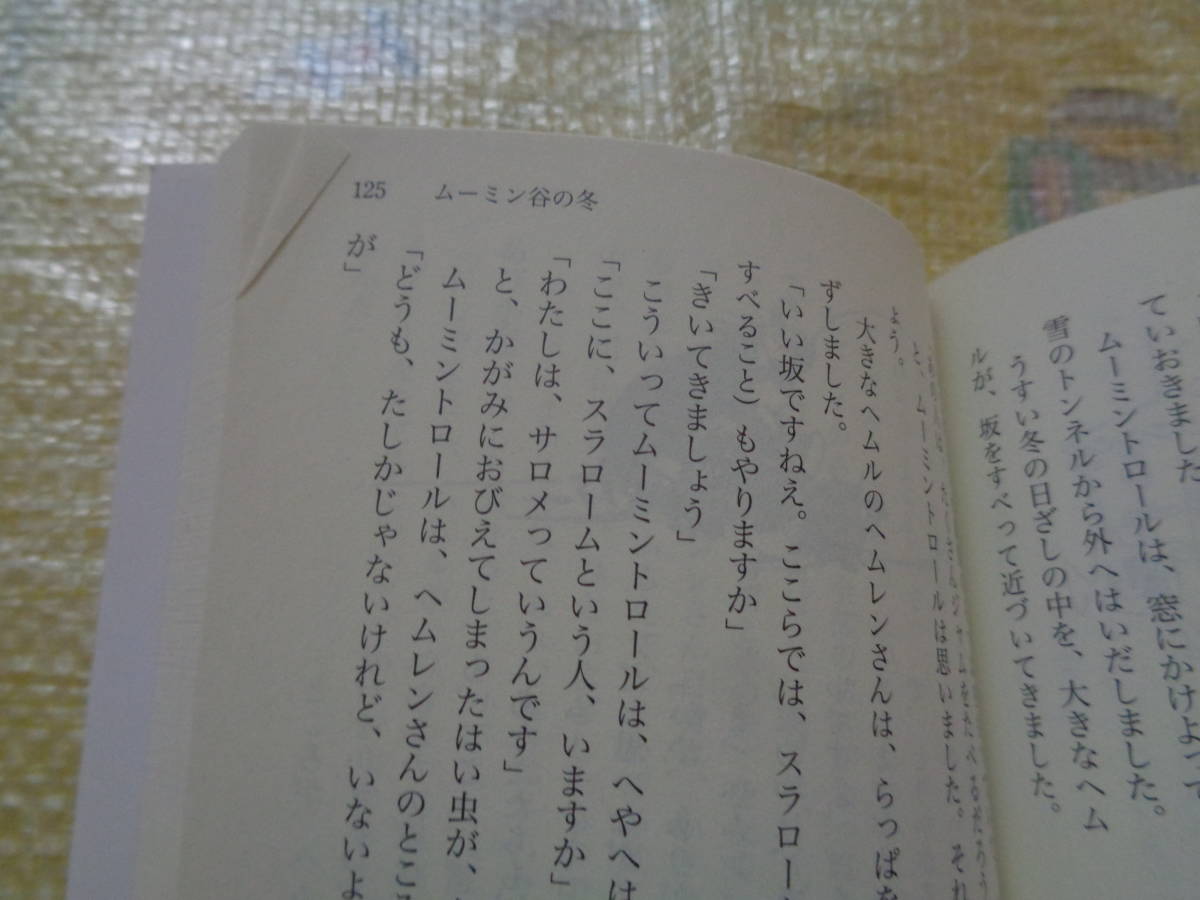 ていおきました
ムーミントロールは、窓にかけよって
雪のトンネルから外へはいだしました。
うすい冬の日ざしの中を、大きなヘム
ルが、坂をすべって近づいてきました。
125 ムーミン谷の冬
と、ムーミントロールは思いました。それ
よう。
大きなヘムルのヘムレンさんは、らっぱを
ずしました。
「いい坂ですねえ。ここらでは、スラロー
すべること）もやりますか」
「きいてきましょう」
こういってムーミントロールは、へやへは
「ここに、スラロームという人、いますか」
「わたしは、サロメっていうんです」
と、かがみにおびえてしまったはい虫が、
ムーミントロールは、ヘムレンさんのところ
「どうも、たしかじゃないけれど、いないよ
が」